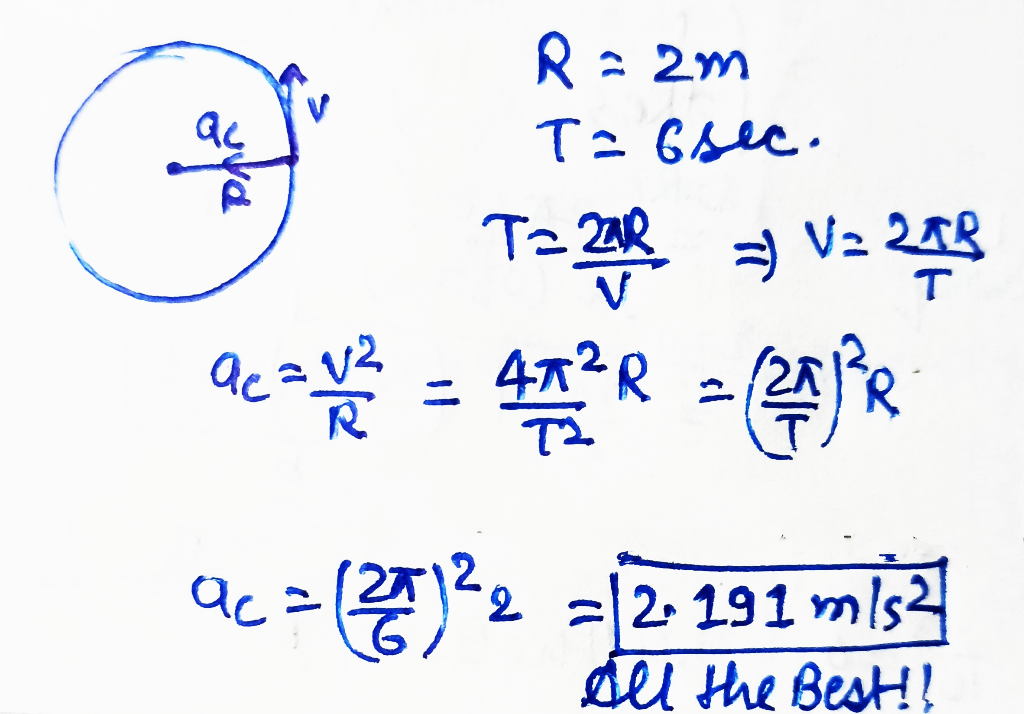 R = 2m
T = 6 sec.
ac
R
V
T = 2πR/V ⇒ V = 2πR/T
ac = V²/R = 4π²R/T² = (2π/T)²R
ac = (2π/6)² 2 = 2.191 m/s²
All the Best!!